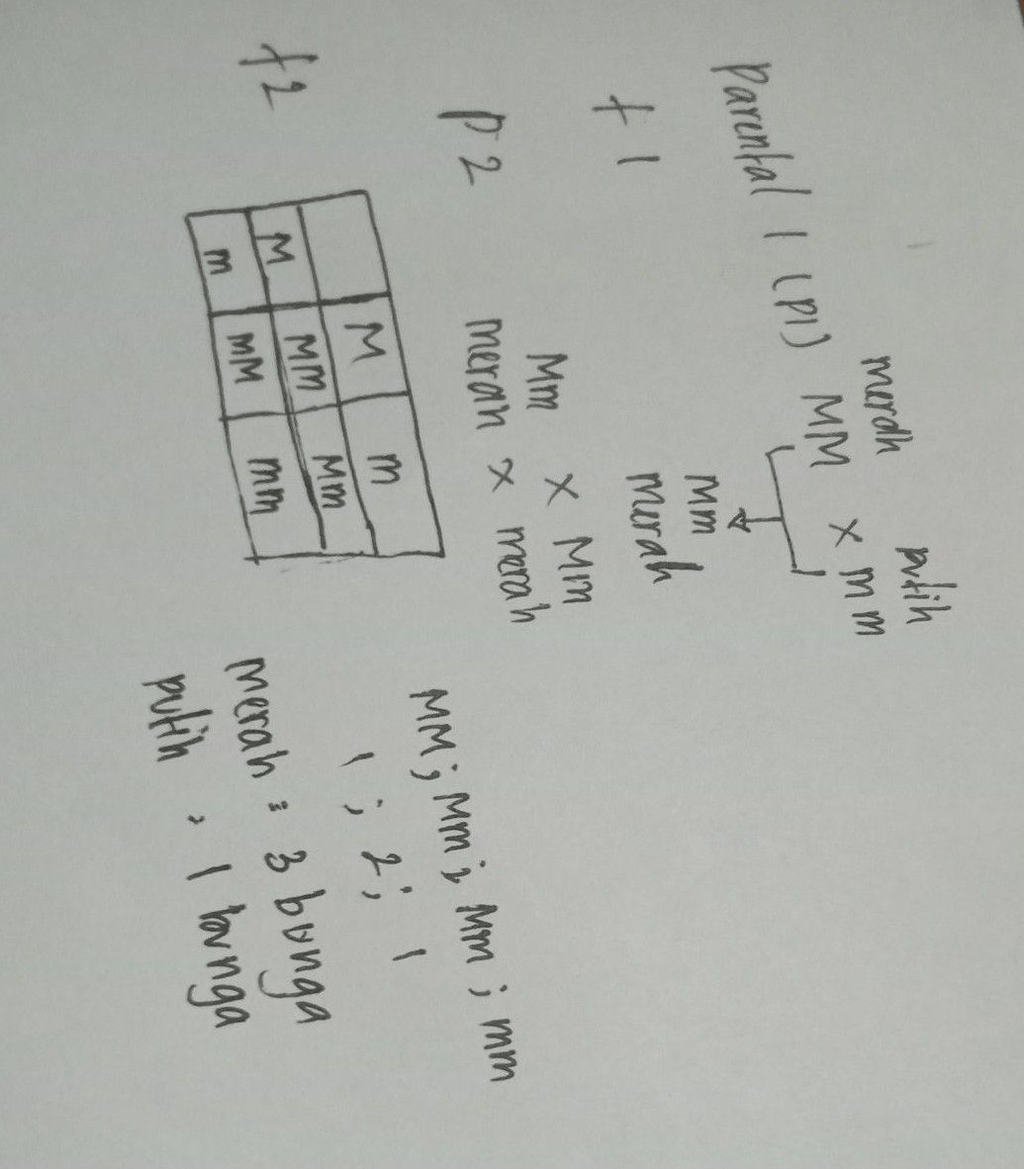 merah putih
Parental 1 (P1) MM x mm
f1 Mm
merah
P2 Mm x Mm
merah x merah
f2
M m
M MM Mm
m mM mm
MM; Mm; Mm; mm
1; 2; 1
merah : 3 bunga
putih : 1 bunga